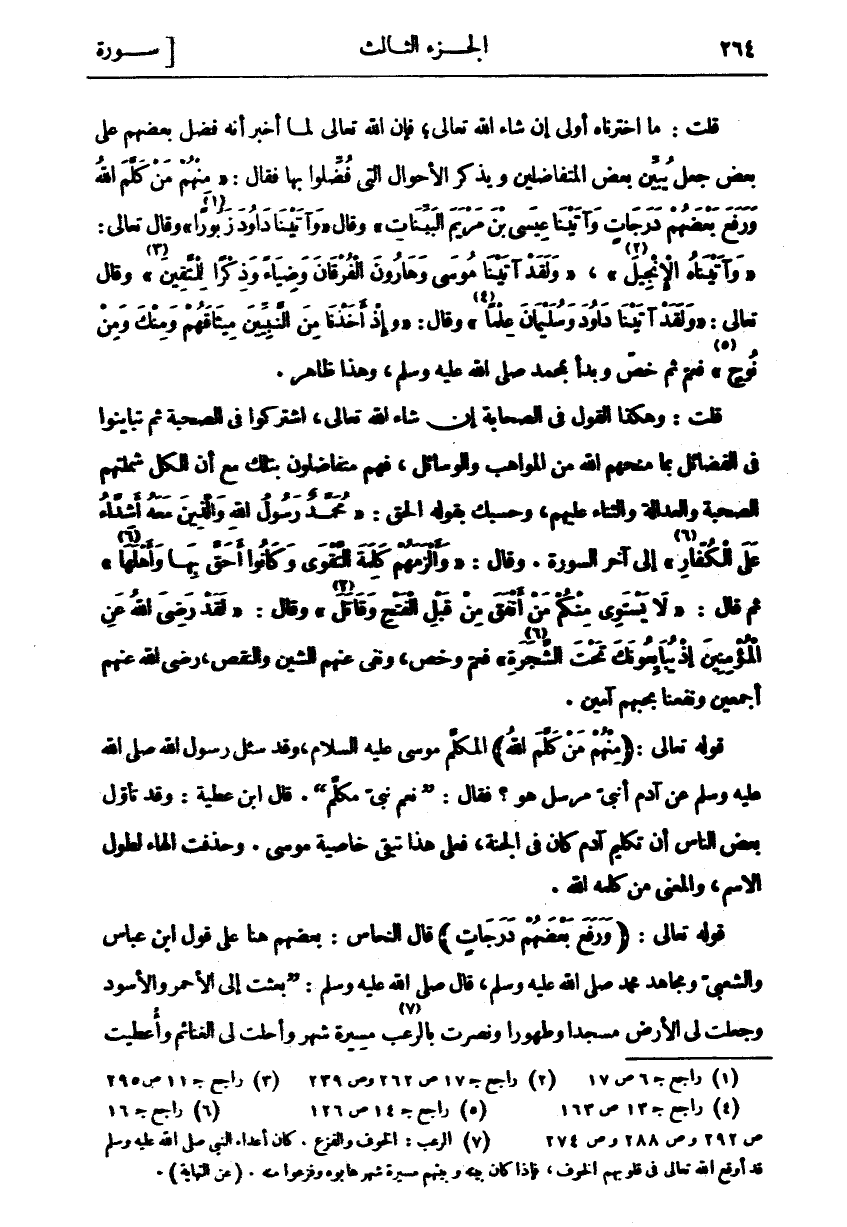 ٢٦٤ الجـــزء الثالث [ ســـورة
قلت : ما اخترناه أولى إن شاء الله تعالى؛ فإن الله تعالى لما أخبر أنه فضل بعضهم على
بعض جعل يُبيِّن بعض المتفاضلين و يذكر الأحوال التى فُضِّلوا بها فقال : « مِنْهُمْ مَنْ كَلَّمَ اللهُ
وَرَفَعَ بَعْضَهُمْ دَرَجَاتٍ وَآتَيْنَا عِيسَى بْنَ مَرْيَمَ الْبَيِّنَاتِ » وقال «وَآتَيْنَا دَاوُدَ زَبُورًا (١)» وقال تعالى :
« وَآتَيْنَاهُ الْإِنْجِيلَ (٢) » ، « وَلَقَدْ آتَيْنَا مُوسَى وَهَارُونَ الْفُرْقَانَ وَضِيَاءً وَذِكْرًا لِلْمُتَّقِينَ (٣) » وقال
تعالى : «وَلَقَدْ آتَيْنَا دَاوُدَ وَسُلَيْمَانَ عِلْمًا (٤) » وقال : «وَإِذْ أَخَذْنَا مِنَ النَّبِيِّينَ مِيثَاقَهُمْ وَمِنْكَ وَمِنْ
نُوحٍ (٥) » فعمّ ثم خصّ و بدأ بمحمد صلى الله عليه وسلم ، وهذا ظاهر .
قلت : وهكذا القول فى الصحابة إن شاء الله تعالى ، اشتركوا فى الصحبة ثم تباينوا
فى الفضائل بما منحهم الله من المواهب والوسائل ، فهم متفاضلون بتلك مع أن الكل شملتهم
الصحبة والعدالة والثناء عليهم ، وحسبك بقوله الحق : « مُحَمَّدٌ رَسُولُ اللهِ وَالَّذِينَ مَعَهُ أَشِدَّاءُ
عَلَى الْكُفَّارِ (٦) » إلى آخر السورة . وقال : « وَأَلْزَمَهُمْ كَلِمَةَ التَّقْوَى وَكَانُوا أَحَقَّ بِهَا وَأَهْلَهَا (٦) »
ثم قال : « لَا يَسْتَوِى مِنْكُمْ مَنْ أَنْفَقَ مِنْ قَبْلِ الْفَتْحِ وَقَاتَلَ (٢) » وقال : « لَقَدْ رَضِىَ اللهُ عَنِ
الْمُؤْمِنِينَ إِذْ يُبَايِعُونَكَ تَحْتَ الشَّجَرَةِ (٦) » فعمّ وخص ، ونفى عنهم الشين والنقص ، رضى الله عنهم
أجمعين ونفعنا بحبهم آمين .
قوله تعالى : ﴿ مِنْهُمْ مَنْ كَلَّمَ اللهُ ﴾ المكلَّم موسى عليه السلام ، وقد سئل رسول الله صلى الله
عليه وسلم عن آدم أنبىّ مرسل هو ؟ فقال : ” نعم نبىّ مكلَّم “ . قال ابن عطية : وقد تأوّل
بعض الناس أن تكليم آدم كان فى الجنة ، فعلى هذا تبقى خاصية موسى . وحذفت الهاء لطول
الاسم ، والمعنى من كلمه الله .
قوله تعالى : ﴿ وَرَفَعَ بَعْضَهُمْ دَرَجَاتٍ ﴾ قال النحاس : بعضهم هنا على قول ابن عباس
والشعبىّ ومجاهد محمد صلى الله عليه وسلم ، قال صلى الله عليه وسلم : ” بعثت إلى الأحمر والأسود
وجعلت لى الأرض مسجدا وطهورا ونصرت بالرعب (٧) مسيرة شهر وأحلت لى الغنائم وأُعطيت
(١) راجع جـ ٦ ص ١٧ (٢) راجع جـ ١٧ ص ٢٦٢ وص ٢٣٩ (٣) راجع جـ ١١ ص ٢٩٥
(٤) راجع جـ ١٣ ص ١٦٣ (٥) راجع جـ ١٤ ص ١٢٦ (٦) راجع جـ ١٦
ص ٢٩٢ و ص ٢٨٨ و ص ٢٧٤ (٧) الرعب : الخوف والفزع . كان أعداء النبى صلى الله عليه وسلم
قد أوقع الله تعالى فى قلوبهم الخوف ، فإذا كان بينه و بينهم مسيرة شهر هابوه وفزعوا منه . ( عن النهاية ) .